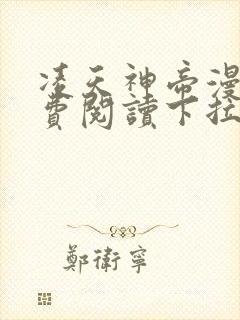 凌天神帝漫
費閱讀下拉
鄭衛寧